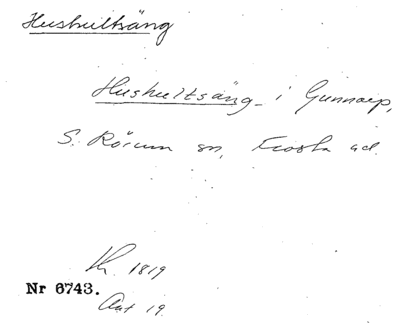 Hushultsäng
Hushultsäng i Gunnarp,
S. Rörum sn, Frosta hd.
Kh. 1819
Nr 6743.
Akt 19.